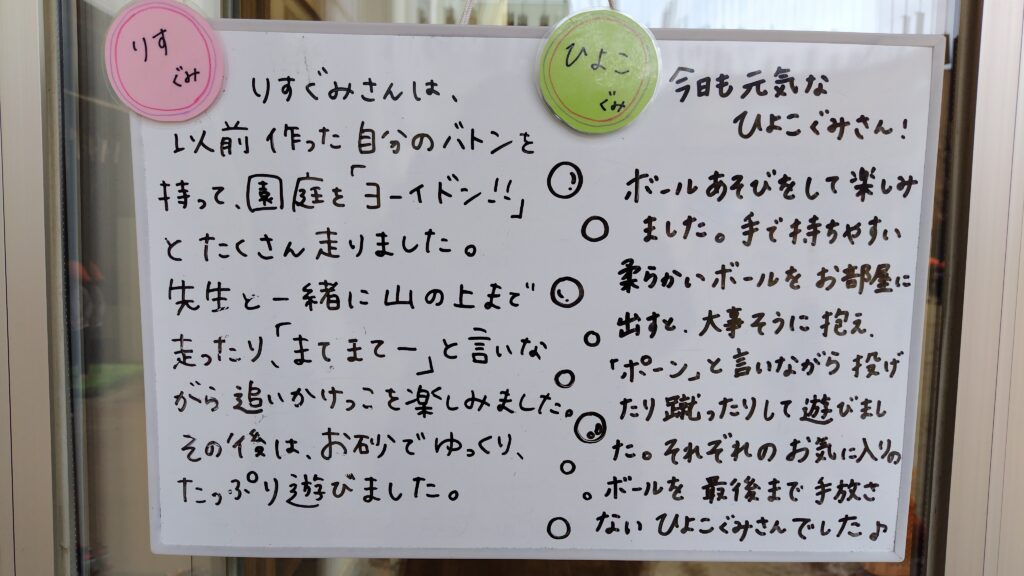 りす
ぐみ
りすぐみさんは、
以前作った自分のバトンを
持って、園庭を「ヨーイドン!!」
とたくさん走りました。
先生と一緒に山の上まで
走ったり、「まてまてー」と言いな
がら追いかけっこを楽しみました。
その後は、お砂でゆっくり、
たっぷり遊びました。
ひよこ
ぐみ
今日も元気な
ひよこぐみさん!
ボールあそびをして楽しみ
ました。手で持ちやすい
柔らかいボールをお部屋に
出すと、大事そうに抱え、
「ポーン」と言いながら投げ
たり蹴ったりして遊びまし
た。それぞれのお気に入りの
ボールを最後まで手放さ
ないひよこぐみさんでした♪